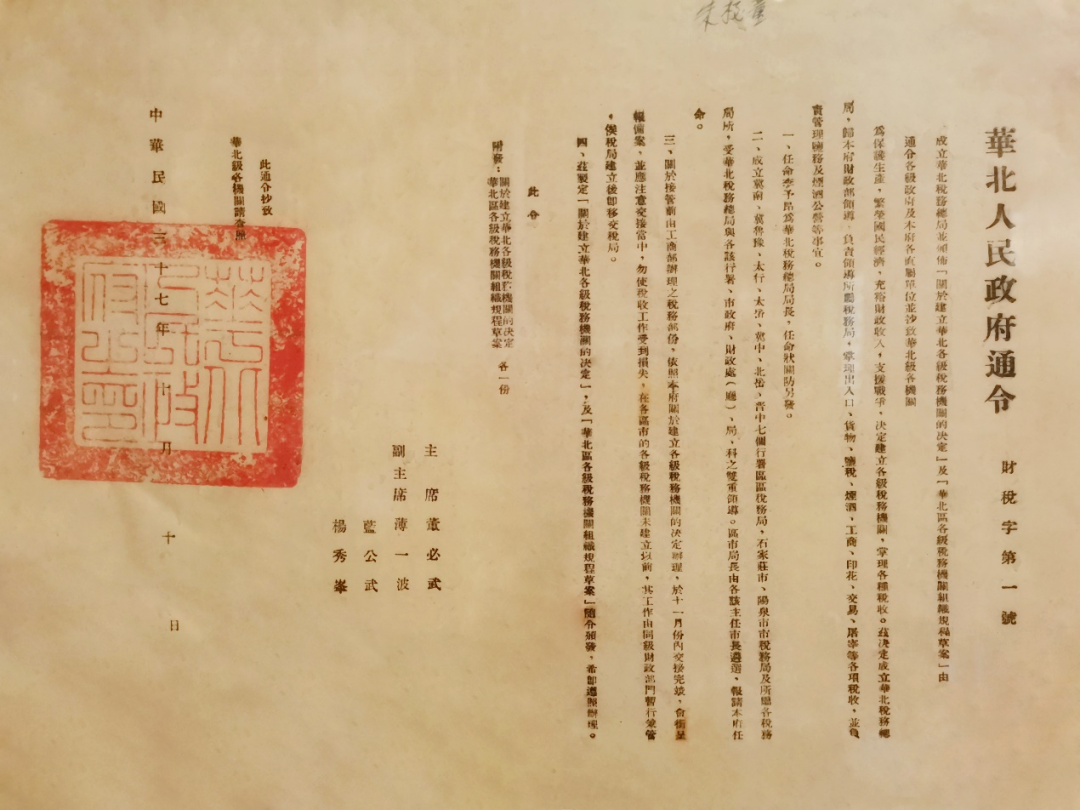 華北人民政府通令
財稅字第一號
成立華北稅務總局並頒佈「關於建立華北各級稅務機關的決定」及「華北區各級稅務機關組織規程草案」由
通令各級政府及本府各直屬單位並抄致華北級各機關
為保護生產，繁榮國民經濟，充裕財政收入，支援戰爭，決定建立各級稅務機關，掌理各種稅收。茲決定成立華北稅務總
局，歸本府財政部領導，負責領導所屬稅務局，掌理出入口、貨物、鹽稅、煙酒、工商、印花、交易、屠宰等各項稅收，並負
責管理鹽務及煙酒公營等事宜。
一、任命李予昂為華北稅務總局局長，任命狀關防另發。
二、成立冀南、冀魯豫、太行、太岳、冀中、北岳、晉中七個行署區稅務局，石家莊市、陽泉市市稅務局及所屬各稅務
局所，受華北稅務總局與各該行署、市政府、財政處（廳）、局、科之雙重領導。區市局長由各該主任市長遴選，報請本府任
命。
三、關於接管前由工商部辦理之稅務部份，依照本府關於建立各級稅務機關的決定辦理，於十一月份內交接完竣，會銜呈
報備案，並應注意交接當中，勿使稅收工作受到損失，在各區市的各級稅務機關未建立以前，其工作由同級財政部門暫行兼管
。俟稅局建立後即移交稅局。
四、茲製定「關於建立華北各級稅務機關的決定」，及「華北區各級稅務機關組織規程草案」隨令頒發，希即遵照辦理。
此令
附發：關於建立華北各級稅務機關的決定
華北區各級稅務機關組織規程草案 各一份
主席 董必武
副主席 薄一波
藍公武
楊秀峯
此通令抄致
華北級各機關請查照
中華民國三十七年十月十日
華北人民政府之印